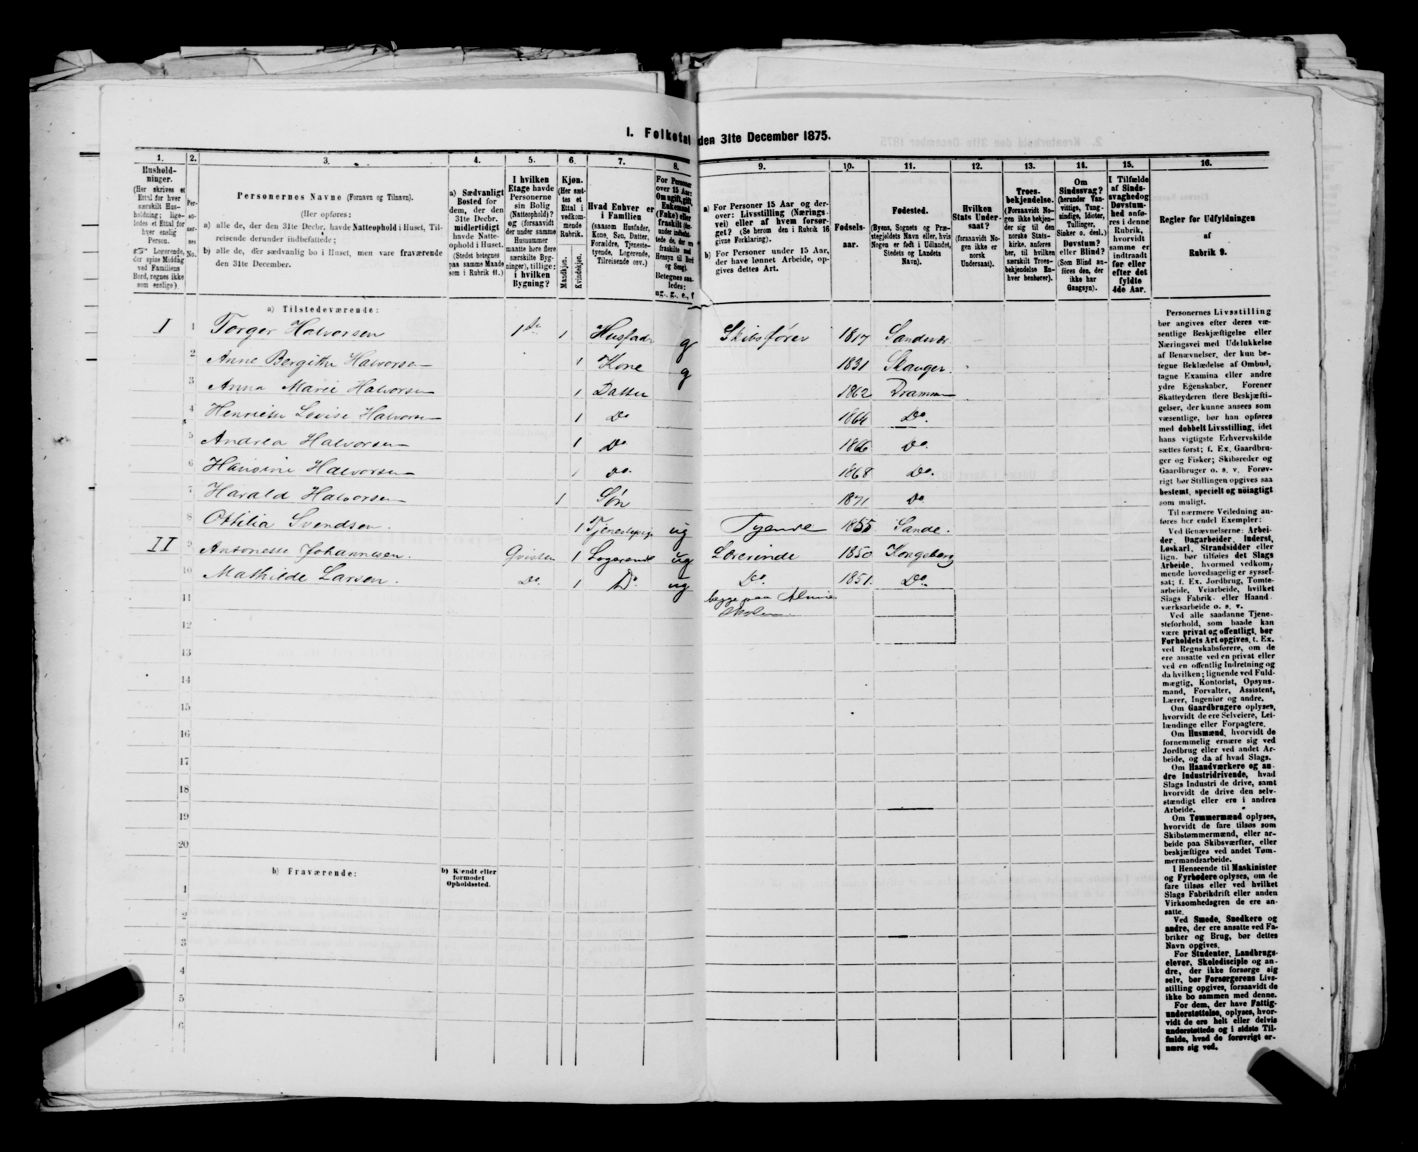 I. Folketal den 31te December 1875.
1. 2. 3. 4. 5. 6. 7. 8. 9. 10. 11. 12. 13. 14. 15. 16.
Hushold-
ninger.
(Her skrives et
Ettal for hver
særskilt Hus-
holdning; lige-
ledes et Ettal for
hver enslig
Person.
Logerende,
der spise Middag
ved Familiens
Bord, regnes ikke
som enslige).
Per-
so-
ner-
nes
No.
Personernes Navne (Fornavn og Tilnavn).
(Her opføres:
a) alle de, der den 31te Decbr. havde Natteophold i Huset, Til-
reisende derunder indbefattede;
b) alle de, der sædvanlig bo i Huset, men vare fraværende
den 31te December.
a) Sædvanligt
Bosted for
dem, der den
31te Decbr.
midlertidigt
havde Natte-
ophold i Huset.
(Stedet betegnes
paa samme Maade
som i Rubrik 11.)
I hvilken
Etage havde
Personerne
sin Bolig
(Natteophold)?
og (forsaavidt
der under samme
Husnummer
maatte høre flere
særskilte Byg-
ninger), tillige:
i hvilken
Bygning?
Kjøn.
(Her sæt-
tes et
Ettal i
vedkom-
mende
Rubrik.
Mandkjøn.
Kvindekjøn.
Hvad Enhver er
i Familien
(saasom Husfader,
Kone, Søn, Datter,
Forældre, Tjeneste-
tyende, Logerende,
Tilreisende osv.)
For Personer
over 15 Aar:
Om ugift, gift,
Enkemand
(Enke) eller
fraskilt
Hensyn til Bord
og Seng).
Betegnes saa-
ledes:
ug., g., e., f
a) For Personer 15 Aar og der-
over: Livsstilling (Nærings-
vei) eller af hvem forsør-
get? (Se herom den i Rubrik 16
givne Forklaring).
b) For Personer under 15 Aar,
der have lønnet Arbeide, op-
gives dettes Art.
Fødsels-
aar.
Fødested.
(Byens, Sognets og Præ-
stegjeldets Navn eller, hvis
Nogen er født i Udlandet,
Stedets og Landets
Navn).
Hvilken
Stats Under-
saat?
(forsaavidt No-
gen ikke er
norsk
Undersaat).
Troes-
bekjendelse.
(Forsaavidt No-
gen ikke bekjen-
der sig til den
norske Stats-
kirke, anføres
her, til hvilken
særskilt Troes-
bekjendelse En-
hver henhører).
Om
Sindssvag?
(herunder Van-
vittige, Tung-
sindige, Idioter,
Tullinger,
Sinker o. desl.)
Døvstum?
eller Blind?
(Som Blind an-
føres den, der
ikke har
Gangsyn).
I Tilfælde
af Sinds-
svaghed og
Døvstum-
hed anfø-
res i denne
Rubrik,
hvorvidt
samme er
indtraadt
før eller
efter det
fyldte
4de Aar.
Regler for Udfyldningen
af
Rubrik 9.
a) Tilstedeværende:
I 1 Torger Halvorsen 1 1 Husfader g Skibsfører 1817
2 Anne Bergithe Halvorsen 1 Kone g 1831 Stanger
3 Anna Marie Halvorsen 1 Datter 1862 Drammen
4 Henriette Lovise Halvorsen 1 Do 1864 Do.
5 Andrea Halvorsen 1 Do 1866 Do.
6 Hansine Halvorsen 1 Do. 1868 Do.
7 Harald Halvorsen 1 Søn 1871 Do
8 Ottilia Svendsen. 1 Tjenestepige ug Tyende 1855 Sande.
II 9 Antonette Johannesen. Qvisten 1 Logerende ug Lærerinde 1850 Kongsberg
10 Mathilde Larsen. Do. 1 Do. ug Do. 1851. Do.
11 begge paa Almue
Skolen
12
13
14
15
16
17
18
19
20
b) Fraværende:
b) Kjendt eller
formodet
Opholdssted.
1
2
3
4
5
6
Personernes Livsstilling
bør angives efter deres væ-
sentlige Beskjæftigelse eller
Næringsvei med Udelukkelse
af Benævnelser, der kun be-
tegne Beklædelse af Ombud,
tagne Examina eller andre
ydre Egenskaber. Forener
Skatteyderen flere Beskjæfti-
gelser, der kunne ansees som
væsentlige, bør han opføres
med dobbelt Livsstilling, idet
hans vigtigste Erhvervskilde
sættes først; f. Ex. Gaardbru-
ger og Fisker; Skibsreder og
Gaardbruger o. s. v. Forøv-
rigt bør Stillingen opgives saa
bestemt, specielt og nøiagtigt
som muligt.
Til nærmere Veiledning an-
føres her endel Exempler:
Ved Benævnelserne: Arbei-
der, Dagarbeider, Inderst,
Løskarl, Strandsidder eller
lign. bør tilføies det Slags
Arbeide, hvormed vedkom-
mende hovedsagelig er syssel-
sat; f. Ex. Jordbrug, Tomte-
arbeide, Veiarbeide, hvilket
Slags Fabrik- eller Haand-
værksarbeide o. s. v.
Ved alle saadanne Tjene-
steforhold, som baade kan
være privat og offentligt, bør
Forholdets Art opgives, t. Ex.
ved Regnskabsførere, om de
ere ansatte ved en privat eller
ved en offentlig Indretning og
da hvilken; lignende ved Fuld-
mægtig, Kontorist, Opsyns-
mand, Forvalter, Assistent,
Lærer, Ingeniør og andre.
Om Gaardbrugere oplyses,
hvorvidt de ere Selveiere, Lei-
lændinge eller Forpagtere.
Om Husmænd, hvorvidt de
fornemmelig ernære sig ved
Jordbrug eller ved andet Ar-
beide, og da af hvad Slags.
Om Haandværkere og an-
dre Industridrivende, hvad
Slags Industri de drive, samt
hvorvidt de drive den selv-
stændigt eller ere i andres
Arbeide.
Om Tømmermænd oplyses,
hvorvidt de fare tilsøs som
Skibstømmermænd, eller ar-
beide paa Skibsværfter, eller
beskjæftiges ved andet Tøm-
mermandsarbeide.
I Henseende til Maskinister
og Fyrbødere oplyses, om de
fare tilsøs eller ved hvilket
Slags Fabrikdrift eller anden
Virksomhedsgren de ere an-
satte.
Ved Smede, Snedkere og
andre, der ere ansatte ved Fa-
briker og Brug, bør dettes
Navn opgives.
For Studenter, Landbrugs-
elever, Skoledisciple og an-
dre, der ikke forsørge sig
selv, bør Forsørgerens Livs-
stilling opgives, forsaavidt de
ikke bo sammen med denne.
For dem, der have Fattig-
understøttelse, oplyses, hvor-
vidt de ere helt eller delvis
understøttede og i sidste Til-
fælde, hvad de forøvrigt er-
nære sig ved.